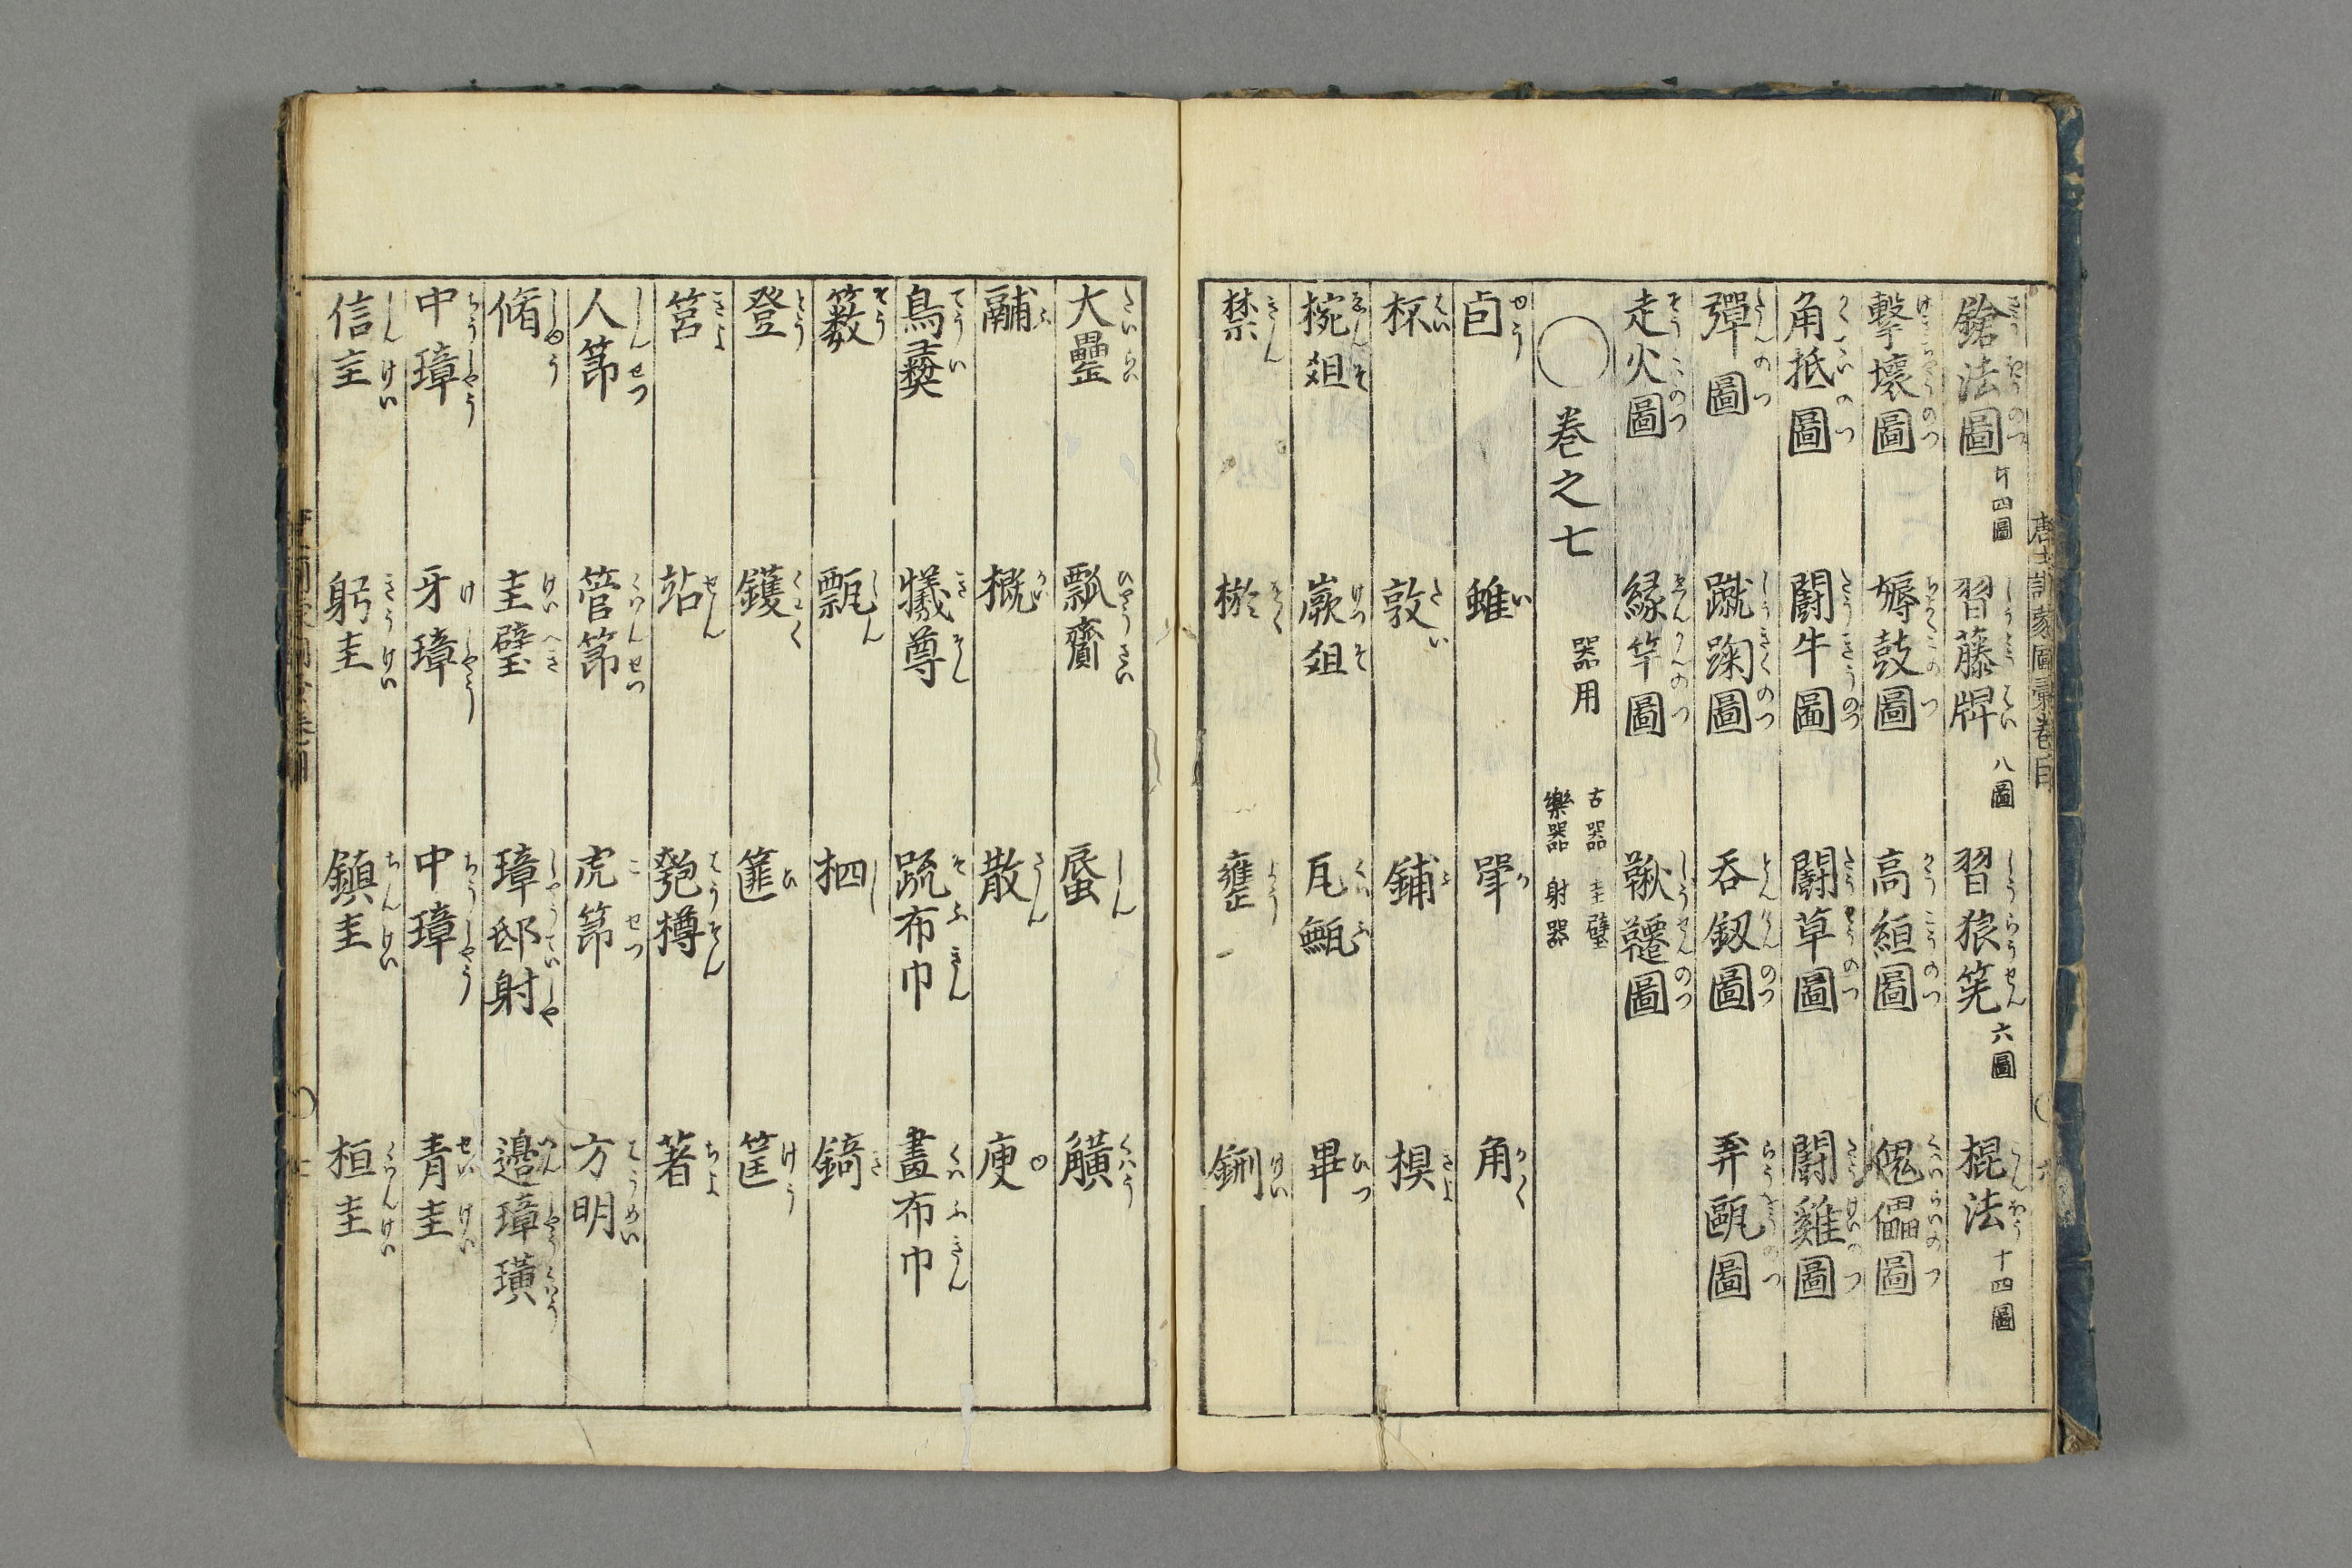 唐土訓蒙圖彙巻目
鎗法圖 廿四圖 習藤牌 八圖 習狼筅 六圖 棍法 十四圖
擊壤圖 鼗鼓圖 高絙圖 傀儡圖
角抵圖 闘牛圖 闘草圖 闘雞圖
彈圖 蹴踘圖 吞釼圖 弄甌圖
走火圖 縁竿圖 鞦韆圖
○ 巻之七 器用 古器 圭璧 樂器 射器
卣 蜼 斝 角
杯 敦 鋪 椇
梡俎 嶡俎 瓦甒 畢
禁 棜 罋 鉶
大罍 瓢齎 蜃 觵
鬴 概 散 庾
鳥彝 犧尊 疏布巾 畫布巾
籔 甑 柶 錡
登 鑊 篚 筐
筥 坫 匏樽 著
人節 管節 虎節 方明
脩 圭璧 璋邸射 邉璋瓚
中璋 牙璋 中璋 青圭
信圭 躬圭 鎮圭 桓圭